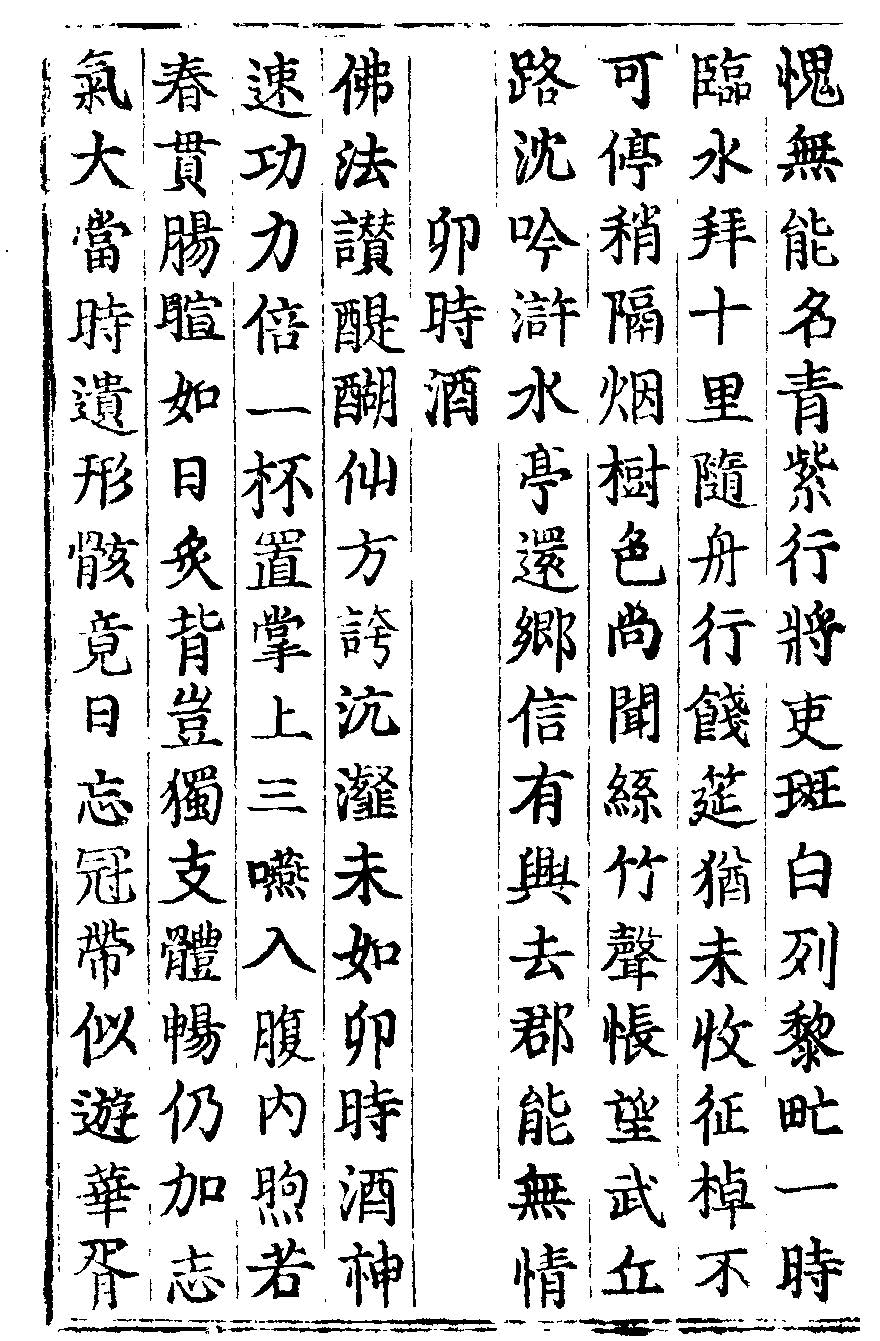 愧無能名青紫行將吏斑白列黎甿一時
臨水拜十里隨舟行餞筵猶未收征棹不
可停稍隔烟樹色尚聞絲竹聲悵望武丘
路沈吟滸水亭還鄉信有興去郡能無情
卯時酒
佛法讃醍醐仙方誇沆瀣未如卯時酒神
速功力倍一杯置掌上三嚥入腹内煦若
春貫腸暄如日炙背豈獨支體暢仍加志
氣大當時遺形骸竟日忘冠帶似遊華胥